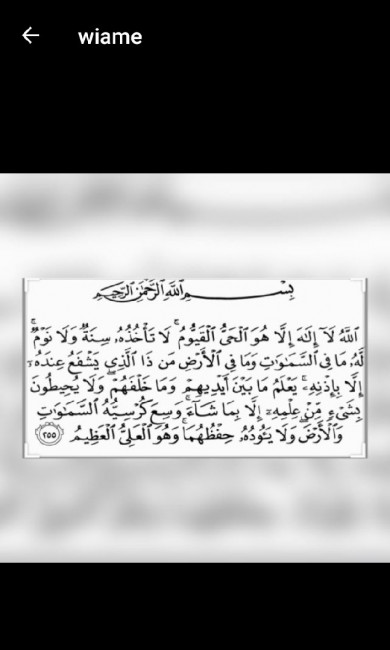 wiame
بِسْمِ اللَّهِ الرَّحْمَٰنِ الرَّحِيمِ
اللَّهُ لَآ إِلَٰهَ إِلَّا هُوَ الْحَىُّ الْقَيُّومُ ۚ لَا تَأْخُذُهُۥ سِنَةٌ وَلَا نَوْمٌ ۚ
لَهُۥ مَا فِى السَّمَٰوَٰتِ وَمَا فِى الْأَرْضِ ۗ مَن ذَا الَّذِى يَشْفَعُ عِندَهُۥٓ
إِلَّا بِإِذْنِهِۦ ۚ يَعْلَمُ مَا بَيْنَ أَيْدِيهِمْ وَمَا خَلْفَهُمْ ۖ وَلَا يُحِيطُونَ
بِشَىْءٍ مِّنْ عِلْمِهِۦٓ إِلَّا بِمَا شَآءَ ۚ وَسِعَ كُرْسِيُّهُ السَّمَٰوَٰتِ
وَالْأَرْضَ ۖ وَلَا يَـُٔودُهُۥ حِفْظُهُمَا ۚ وَهُوَ الْعَلِىُّ الْعَظِيمُ ٢٥٥